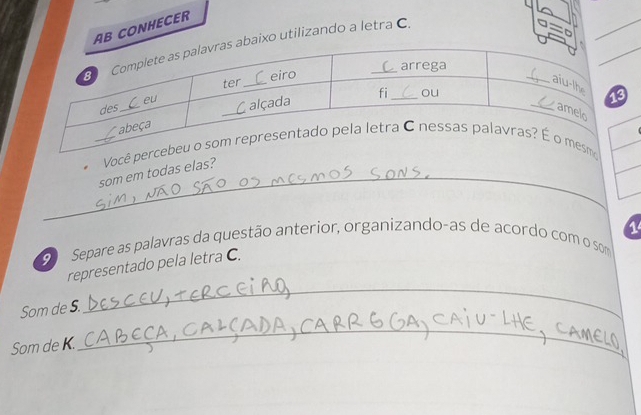 AB CONHECER
8 Complete as palavras abaixo utilizando a letra C.
des C eu ter C eiro C arrega C aiu-lhe
C abeça C alçada fi ou C amelo
13
• Você percebeu o som representado pela letra C nessas palavras? É o mesmo
som em todas elas?
SIM, NÃO SÃO OS MESMOS SONS.
9 Separe as palavras da questão anterior, organizando-as de acordo com o som
representado pela letra C.
Som de S. DESCEU, TERCEIRO,
Som de K. CABEÇA, CALÇADA, CARREGA, CAIU-LHE, CAMELO,